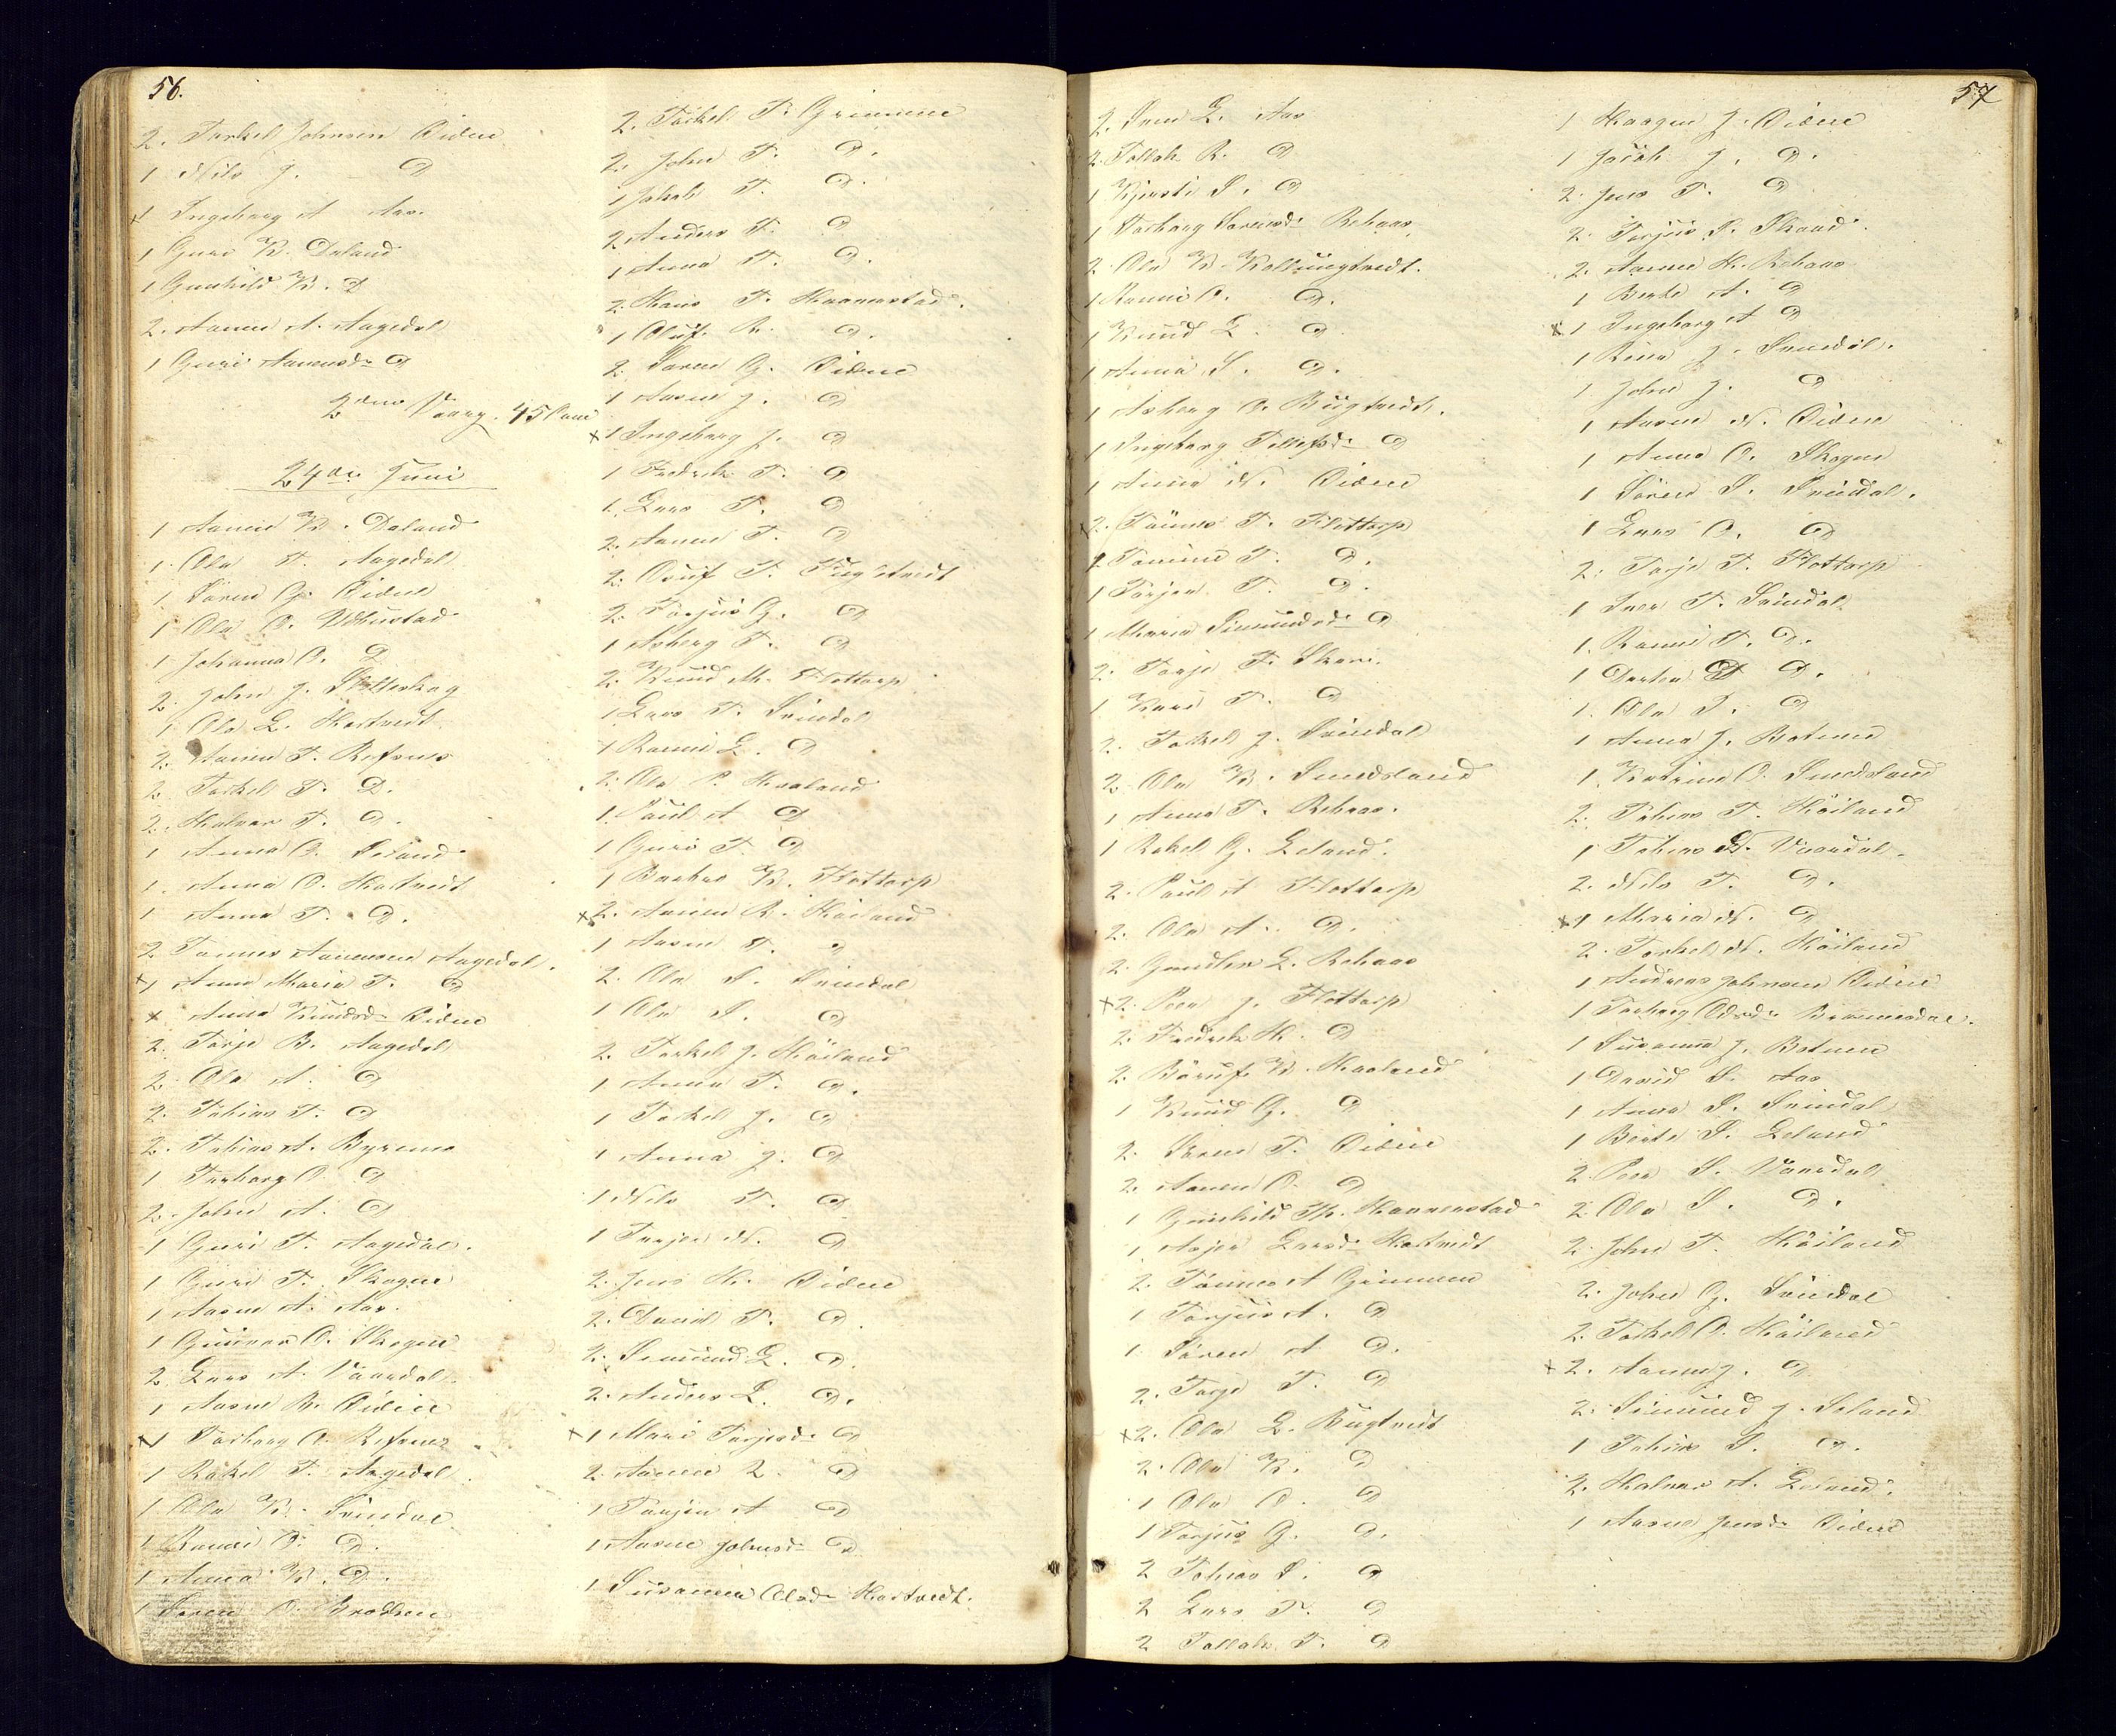 56.
2. Torkel Johnsen Eidne
1 Nils J. D
x Ingeborg A Aas.
1 Guri K. Deland
1 Gunhild K. D
2. Aanen A. Aagedal
1 Guri Aanensd. D
2den Vaarg. 45 Pare
24de Juni
1 Aanen K. Deland
1. Ola T. Aagedal
1 Søren G. Eidne
1 Ola O. Udhustad
1 Johanna O. D
2. John J.
1 Ola L. Hartvedt
2. Aanen T. Refsnes
2 Torkel T. D.
2. Halvor T. D.
1 Anna O. Leland
1. Anna O. Hartvedt
1 Anna T. D.
2 Tønnes Aanensen Aagedal.
x1 Anne Maria T. D
x Anna Knudsd. Eidne
2. Torje B. Aagedal
2. Ola A. D
2. Tobias T. D
2. Tobias A. Byremo
1 Torborg O. D
2. John A. D
1 Guri T. Aagedal.
1 Guri T. Skogen
1 Aasne A. Aas.
1 Gunnar O. Skogen
2 Lars A. Vaardal.
1 Aasne R. Eidne
x1 Torborg O. Refsnes
1 Rakel T. Aagedal
1 Ola K. Svindal
1 Ranni O. D.
1 Anna K. D.
1 Søren O.
2. Torkel T. Grimme
2. John T. D.
1 Jakob T. D.
2 Anders T. D
1 Anna T. D.
2. Hans T. Haanestad.
1 Oluf R. D.
2. Søren G. Eidne
1 Aasne J. D
x1 Ingeborg J. D
1 Fredrek T. D
1. Lars T. D
2. Aanen T. D
2. Osuf T.
2. Torjus G. D
1 Asborg T. D
2. Knud M. Flottorp
1 Lars T. Svindal
1 Ranni L. D
2. Ola P. Haaland
1. Paul A D
1 Guri T. D
1 Barbro K. Flottorp
x2. Aanen R. Høiland
1 Aasne T. D
2. Ola S. Svindal
1 Ola S. D
2. Torkel J. Høiland
1 Anna T. D.
1 Torkel J. D
1 Anna J. D
1 Nils T. D
1 Torjer N. D
2. Jens H. Eidne
2. Daniel T. D.
2. Simund L. D.
2. Anders L. D.
x1 Mari Torjesd. D
2. Aanen L. D
1 Torjer A D
1 Aasne Johnsd. D
1 Susanna Olsd. Hartvedt.
57
2. Sven L. Aas
2. Tollak R. D
1 Kjersti S. D
1 Torborg Sørensd. Rehaas,
2. Ola K. Kollungtvedt.
1 Ranni O. D.
1 Knud L. D
1 Anna S. D.
1 Asborg O. Bugtvedt.
1 Ingeborg Tollefsd. D
1 Anna N. Eidne
x2. Tønnes T. Flottorp
1 Tomine T. D.
1 Torjer T. D.
1 Maria Simundsd. D
2. Torje F.
1 Kari T. D
2. Torkel J. Svindal
2. Ola K. Smedsland
1 Anna T. Rehaas.
1 Rakel G. Leland.
2. Paul A Flottorp
2. Ola A. D.
2. Gundler L. Rehaas
x2. Peer J. Flottorp
2. Fredrek H. D
2. Børuf K. Haaland
1 Knud G. D
2. Søren T. Eidne
2. Aanen O. D
1 Gunhild Th. Haanestad
1 Asjer Larsd. Hartvedt
2. Tønnes A Grimmen
1 Torjus A. D
1. Søren A D.
2. Torje T. D
x2. Ola L. Bugtvedt
2. Ola K. D
1 Ola O. D
1 Torjus G. D.
2 Tobias S. D
2 Lars T. D
2 Tollak T. D
1 Haagen J. Eidne
1 Jacob J. D.
2. Jens T. D
2. Torjus S. Skaad.
2. Aanen H. Rehaas
1 Berte A. D
x1 Ingeborg A D
1 Rina J. Svindal.
1 John J. D
1 Aasne N. Eidne
1 Anna O. Skogen
1 Søren S. Svindal.
1 Lars O. D
2. Torje T. Flottorp
1 Iver T. Svindal
1. Ranni T. D.
1 Dorthea T D.
1. Ola T. D
1 Anna J. Botnen
1. Katrine O. Smedsland
2. Tobias T. Høiland
1 Tobias N. Vaardal.
2. Nils T. D.
x1 Maria N. D
2. Torkel N. Høiland
1 Andreas Johnsen Eidne
1 Torborg Olsd.
1 Susanna J. Botnen
1 David S. Aas
1 Anna S. Svindal
1 Berte S. Leland
2. Peer S. Vaardal
2. Ola S. D.
2. John T. Høiland
2. John G. Svindal
2. Torkel O. Høiland
x2. Aanen J. D
2. Simund J. Leland
1 Tobias S. D.
2. Halvor A. Leland.
1 Aasne Jensd. Eidne